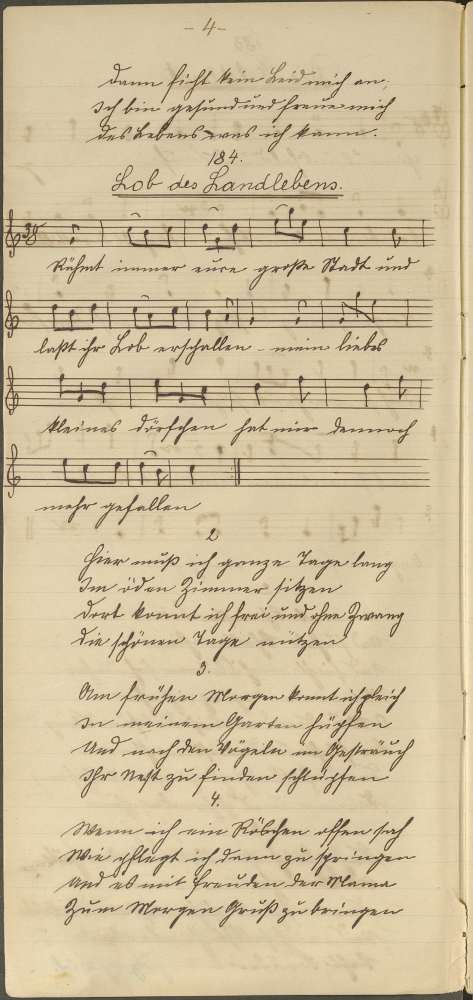 - 4 -
Dann ficht kein Leid mich an,
Ich bin gesund und freue mich
des Lebens was ich kann.
184.
Lob des Landlebens.
Rühmt immer eure große Stadt und
laßt ihr Lob erschallen - mein liebes
kleines dörfchen hat mir dennoch
mehr gefallen
2
Hier muß ich ganze Tage lang
Im öden Zimmer sitzen
dort konnt ich frei und ohne Zwang
die schönen Tage nützen
3.
Am frühen Morgen konnt ich gleich
In meinem Garten hüpfen
Und nach den Vögeln im Gesträuch
Ihr Nest zu finden schlüpfen
4.
Wenn ich ein Röschen offen sah
Wie pflegt ich dann zu springen
Und es mit Freuden der Mama
Zum Morgen Gruß zu bringen